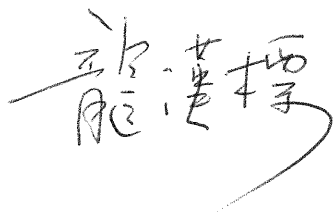 龍漢標